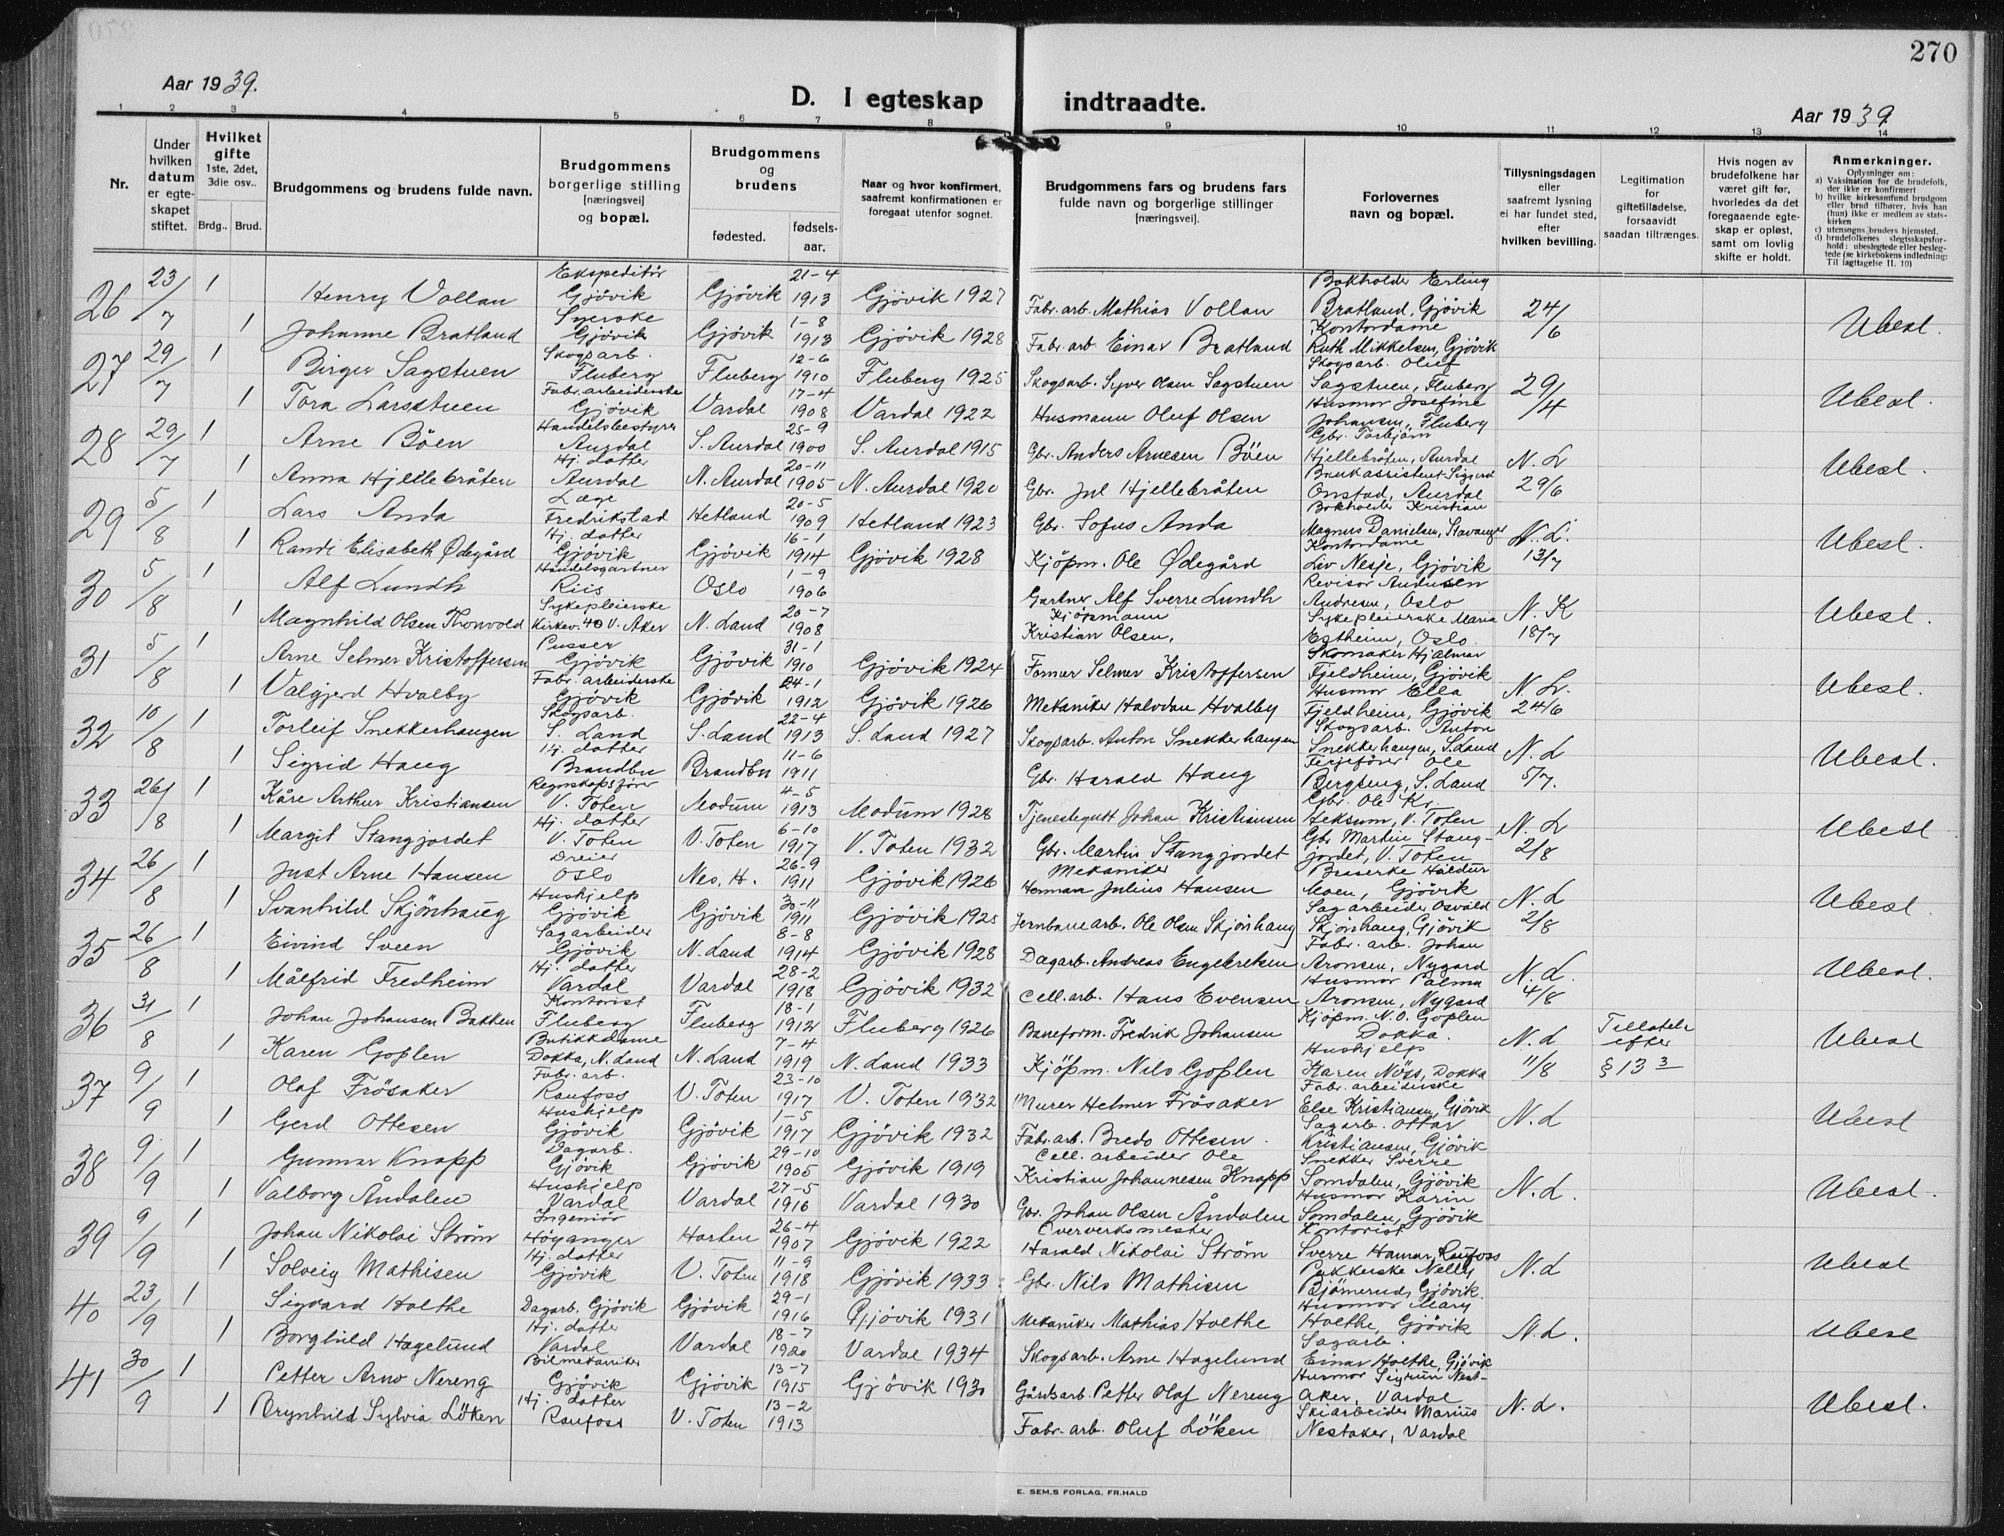 270
Aar 1939.
D. I egteskap indtraadte.
Aar 1939
1 2 3 4 5 6 7 8 9 10 11 12 13 14
Nr.
Under hvilken datum er egteskapet stiftet.
Hvilket gifte 1ste, 2det, 3die osv..
Brdg.. Brud.
Brudgommens og brudens fulde navn.
Brudgommens borgerlige stilling [næringsvei] og bopæl.
Brudgommens og brudens
fødested. fødselsaar.
Naar og hvor konfirmert, saafremt konfirmationen er foregaat utenfor sognet.
Brudgommens fars og brudens fars fulde navn og borgerlige stillinger [næringsvei].
Forlovernes navn og bopæl.
Tillysningsdagen eller saafremt lysning ei har fundet sted, efter hvilken bevilling.
Legitimation for giftetilladelse, forsaavidt saadan tiltrænges.
Hvis nogen av brudefolkene har været gift før, hvorledes da det foregaaende egteskap er opløst, samt om lovlig skifte er holdt.
Anmerkninger.
Oplysninger om:
a) Vaksination for de brudefolk, der ikke er konfirmert
b) hvilke kirkesamfund brudgom eller brud tilhører, hvis han (hun) ikke er medlem av statskirken
c) utensogns bruders hjemsted.
d) brudefolkenes slegtsskapsforhold: ubeslegtede eller beslegtede (se kirkebokens indledning: Til iagttagelse II. 10)
26 23/7 1 Henry Vollan Ekspeditør Gjøvik Gjøvik 21-4 1913 Gjøvik 1927 Fabr. arb. Mathias Vollan Bokholder Erling Bratland, Gjøvik 24/6 Ubesl.
1 Johanne Bratland Syerske Gjøvik Gjøvik 1-8 1913 Gjøvik 1928 Fabr. arb. Einar Bratland Kontordame Ruth Mikkelsen, Gjøvik
27 29/7 1 Birger Sagstuen Skogsarb. Fluberg Fluberg 12-6 1910 Fluberg 1925 Skogsarb. Syver Olsen Sagstuen Skogsarb. Oluf Sagstuen, Fluberg 29/4 Ubesl.
1 Tora Larsstuen Fabr. arbeiderske Gjøvik Vardal 17-4 1908 Vardal 1922 Husmann Oluf Olsen Husmor Josefine Johansen, Fluberg
28 29/7 1 Arne Böen Handelsbestyrer Aurdal S. Aurdal 25-9 1900 S. Aurdal 1915 Gbr. Anders Arnesen Böen Gbr. Torbjørn Hjellebråten, Aurdal N. L 29/6 Ubesl.
1 Anna Hjellebråten Hj. datter Aurdal N. Aurdal 20-11 1905 N. Aurdal 1920 Gbr. Jul Hjellebråten Bankassistent Sigurd Onstad, Aurdal
29 5/8 1 Lars Anda Læge Fredrikstad Hetland 20-5 1909 Hetland 1923 Gbr. Sofus Anda Bokholder Kristian Magnus Danielsen, Stavanger N. L. 13/7 Ubesl.
1 Randi Elisabeth Ødegård Hj. datter Gjøvik Gjøvik 16-1 1914 Gjøvik 1928 Kjöpm. Ole Ødegård Kontordame Liv Nesje, Gjøvik
30 5/8 1 Alf Lundh Handelsgartner Riis Oslo 1-9 1906 Gartner Alf Sverre Lundh Revisor Andresen, Oslo N. K 18/7 Ubesl.
1 Magnhild Olsen Thonvold Sykepleierske Kirkev. 40 V. Aker N. Land 20-7 1908 Kjöpmann Kristian Olsen, Sykepleierske Maria Estheim, Oslo.
31 5/8 1 Arne Selmer Kristoffersen Pusser Gjøvik Gjøvik 31-1 1910 Gjøvik 1924 Former Selmer Kristoffersen Skomaker Hjalmar Fjeldheim, Gjøvik N. L. 24/6 Ubesl.
1 Valgjerd Hvalby Fabr. arbeiderske Gjøvik Gjøvik 24-1 1912 Gjøvik 1926 Mekaniker Halvdan Hvalby Husmor Ella Fjeldheim, Gjøvik
32 10/8 1 Torleif Snekkerhaugen Skogsarb. S. Land S. Land 22-4 1913 S. Land 1927 Skogsarb. Anton Snekkerhaugen Skogsarb. Anton Snekkerhaugen, S. Land N. L 5/7. Ubesl.
1 Sigrid Haug Hj. datter Brandbu Brandbu 11-6 1911 Gbr. Harald Haug Ferjefører Ole Bergseng, S. Land
33 26/8 1 Kåre Arthur Kristiansen Regnskapsfører V. Toten Modum 4-5 1913 Modum 1928 Tjenestegutt Johan Kristiansen Gbr. Ole Kr. V. Toten N. L 2/8 Ubesl
1 Margit Stangjordet Hj. datter V. Toten V. Toten 6-10 1917 V. Toten 1932 Gbr. Martin Stangjordet Gbr Martin Stangjordet, V. Toten
34 26/8 1 Just Arne Hansen Dreier Oslo Nes, H. 26-9 1911 Gjøvik 1926 Mekaniker Herman Julius Hansen Moen, Gjøvik N. L 2/8 Ubesl.
1 Svanhild Skjönhaug Hushjelp Gjøvik Gjøvik 30-11 1911 Gjøvik 1925 Jernbanearb. Ole Olsen Skjönhaug Sagarbeider Osvald Skjönhaug, Gjøvik
35 26/8 1 Eivind Sveen Sagarbeider Gjøvik N. Land 8-8 1914 Gjøvik 1928 Dagarb. Andreas Engebretsen Fabr. arb. Johan Aronsen, Nygard N. L. 4/8 Ubesl.
1 Målfrid Fredheim Hj. datter Vardal Vardal 28-2 1918 Gjøvik 1932 Cell. arb. Hans Evensen Husmor Palma Aronsen, Nygard
36 31/8 1 Johan Johansen Bakken Kontorist Fluberg Fluberg 18-1 1912 Fluberg 1926 Baneform. Fredrik Johansen Kjöpm. N. O. Goplen Dokka. N. L 11/8 Tillatelse efter § 13 3 Ubesl
1 Karen Goplen Butikkdame Dokka, N. Land N. Land 7-4 1919 N. Land 1933 Kjöpm. Nils Goplen Hushjelp Karen Nöss, Dokka
37 9/9 1 Olaf Frösaker Fabr. arb. Raufoss V. Toten 23-10 1917 V. Toten 1932 Murer Helmer Frösaker Fabr. arbeiderske Else Kristiansen, Gjøvik N. L Ubesl
1 Gerd Ottesen Hushjelp Gjøvik Gjøvik 1-5 1917 Gjøvik 1932 Fabr. arb. Bredo Ottesen. Sagarb. Ottar Kristiansen, Gjøvik
38 9/9 1 Gunnar Knapp Dagarb. Gjøvik Gjøvik 29-10 1905 Gjøvik 1919 Cell. arbeider Ole Kristian Johannesen Knapp Snekker Sverre Somdalen, Gjøvik N. L. Ubesl.
1 Valborg Åndalen Hushjelp Vardal Vardal 27-5 1916 Vardal 1930 Gbr. Johan Olsen Åndalen Husmor Karin Somdalen, Gjøvik
39 9/9 1 Johan Nikolai Ström Ingeniør Höyanger Horten 26-4 1907 Gjøvik 1922 Eververksmester Harald Nikolai Ström Kontorist Sverre Hamar, Raufoss N. L Ubesl
1 Solveig Mathisen Hj. datter Gjøvik V. Toten 11-9 1918 Gjøvik 1933 Gbr. Nils Mathisen Pakkerske Nelly Björnerud, Gjøvik.
40 23/9 1 Sigvard Holthe Dagarb. Gjøvik Gjøvik 29-1 1916 Gjøvik 1931 Mekaniker Mathias Holthe Husmor Mary Holthe, Gjøvik N. L. Ubesl
1 Borghild Hagelund Hj. datter Vardal Vardal 18-7 1920 Vardal 1934 Skogsarb. Arne Hagelund Sagarb. Einar Holthe, Gjøvik
41 30/9 1 Petter Arno Nereng Bilmekaniker Gjøvik Gjøvik 13-7 1915 Gjövik 1930 Gårdsarb. Petter Olaf Nereng Husmor Sigrun Nestaker, Vardal N. L. Ubesl.
1 Brynhild Sylvia Löken Hj. datter Raufoss V. Toten 13-2 1913 Fabr. arb. Oluf Löken Skiarbeider Marius Nestaker, Vardal
E. SEM.S FORLAG, FR.HALD